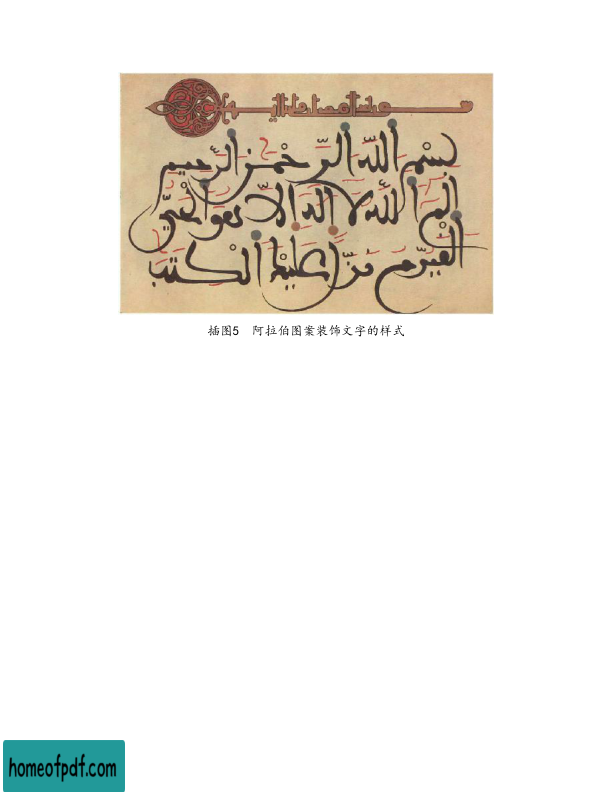 بِسْمِ اللَّهِ الرَّحْمٰنِ الرَّحِيمِ
الم اللَّهُ لا اله الا هو الحيّ
القيّوم نزّل عليك الكتب
插图5 阿拉伯图案装饰文字的样式
homeofpdf.com